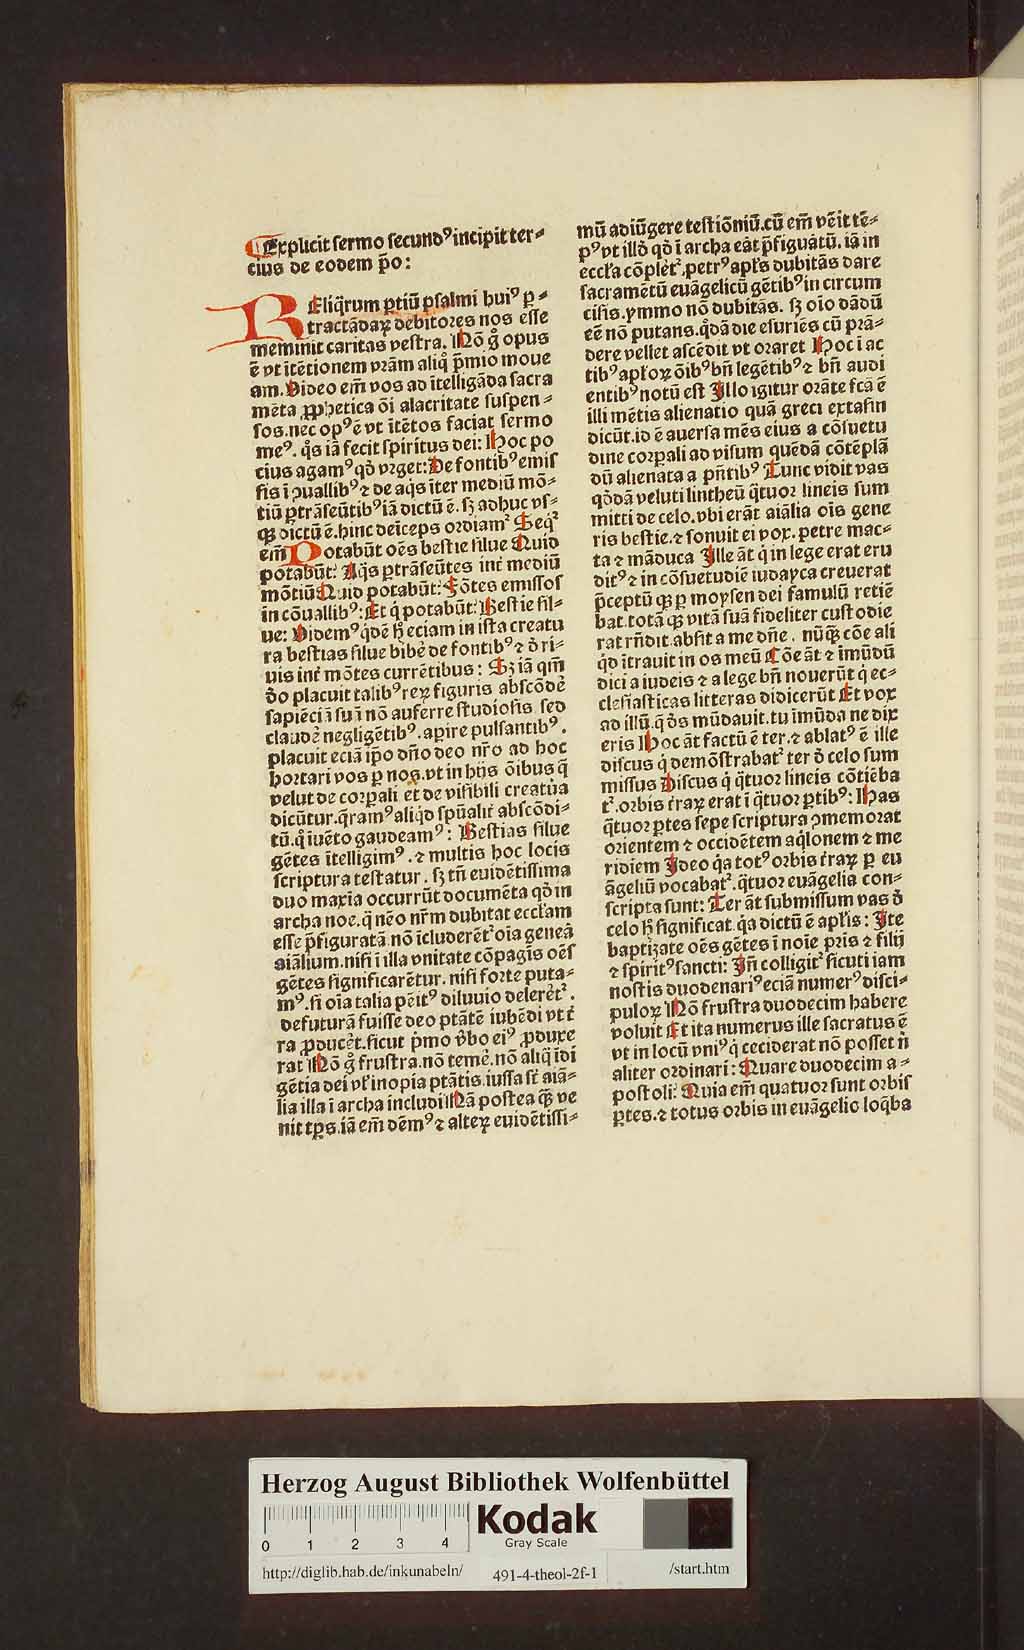 Explicit sermo secundꝰ incipit ter⸗
cius de eodem p̄o:
REliq̄rum ꝑtiū psalmi huiꝰ ꝑ⸗
tractādaꝝ debitores nos esse
meminit caritas vestra. Nō gͦ opus
ē vt ītētionem vrām aliqͦ p̄mio moue
am. Video em̄ vos ad ītelligāda sacra
mēta ꝓphetica ōi alacritate suspen⸗
sos. nec opꝰ ē vt ītētos faciat sermo
meꝰ. qͦs iā fecit spiritus dei: Hoc po
cius agamꝰ qd̄ vrget: De fontibꝰ emis
sis ī ꝯuallibꝰ ⁊ de aq̄s iter mediū mō⸗
tiū ꝑtrāseūtibꝰ iā dictū ē. sꝫ adhuc vs⸗
qꝫ dictū ē. hinc deīceps ordiamᷣ Seqᷣ
em̄ Potabūt oēs bestie silue Quid
potabūt: Aq̄s ꝑtrāseūtes int̄ mediū
mōtiū Quid potabūt: Fōtes emissos
in cōuallibꝰ: Et q̇ potabūt: Bestie sil⸗
ue: Videmꝰ qͥdē hͦ eciam in ista creatu
ra bestias silue bibe᷑ de fontibꝰ ⁊ d̄ ri⸗
uis int̄ mōtes currētibus: Sꝫ iā qm̄
d̄o placuit talibꝰ reꝝ figuris abscōde᷑
sapiēciā suā nō auferre studiosis sed
claude᷑ negligētibꝰ. aꝑire pulsantibꝰ.
placuit eciā ip̄o dn̄o deo nr̄o ad hoc
hortari vos ꝑ nos. vt in hijs ōibus q̄
velut de corꝑali et de visibili creatu᷑a
dicūtur. q̄ramꝰ aliqͥd spūalit̄ abscōdi⸗
tū. qͦ iuēto gaudeamꝰ: Bestias silue
gētes ītelligimꝰ. ⁊ multis hoc locis
scriptura testatur. sꝫ tn̄ euidētissima
duo maxīa occurrūt documēta qd̄ in
archa noe. q̄ nēo nr̄m dubitat eccl̄am
esse p̄figuratā. nō īcluderētᷣ oīa geneā
aiālium. nisi ī illa vnitate cōpagis oēs
gētes significarētur. nisi forte puta⸗
mꝰ. si oīa talia pēitꝰ diluuio delerētᷣ.
defuturā fuisse deo ptātē iubēdi vt t̄
ra ꝓducēt. sicut p̄mo v̄bo eiꝰ ꝓduxe
rat Nō gͦ frustra. nō teme᷑. nō aliq̄ īdi
gētia dei vl̄ inopia ptātis. iussa sīt aiā⸗
lia illa ī archa includi Nā postea qꝫ ve
nit tp̄s. iā em̄ dem̄ꝰ ⁊ alteꝝ euidētissi⸗
mū adiūgere testiōniū. cū em̄ vēit tē⸗
pꝰ vt illd̄ qd̄ ī archa eāt p̄figuatū. iā in
eccl̄a cōpletᷣ. petrꝰ apl̄s dubitās dare
sacramētū euāgelicū gētibꝰ in circum
cisis. ymmo nō dubitās. sꝫ oīo dādū
eē nō putans. q̄dā die esuriēs cū prā⸗
dere vellet ascēdit vt oraret Hoc ī ac
tibꝰ apl̄oꝝ ōibꝰ bn̄ legētibꝰ ⁊ bn̄ audi
entibꝰ notū est Illo igitur orāte fc̄a ē
illi mētis alienatio quā greci extasin
dicūt. id ē auersa mēs eius a cōsuetu
dine corꝑali ad visum quēdā cōtēplā
dū alienata a pn̄tibꝰ Tunc vidit vas
qd̄dā veluti lintheū qͣtuor lineis sum
mitti de celo. vbi erāt aiālia oīs gene
ris bestie. ⁊ sonuit ei vox. petre mac⸗
ta ⁊ māduca Ille āt q̇ in lege erat eru
ditꝰ ⁊ in cōsuetudiē iudayca creuerat
p̄ceptū qꝫ ꝑ moysen dei famulū retiē
bat. totā qꝫ vitā suā fideliter custodie
rat rn̄dit. absit a me dn̄e. nūqꝫ cōe ali
qͥd ītrauit in os meū Cōe āt ⁊ īmūdū
dici a iudeis ⁊ a lege bn̄ nouerūt q̇ ec⸗
clesiasticas litteras didicerūt Et vox
ad illū. q̄ ds̄ mūdauit. tu īmūda ne dix
eris Hoc āt factū ē ter. ⁊ ablatꝰ ē ille
discus q̇ demōstrabatᷣ ter d̄ celo sum
missus Discus q̇ qͣtuor lineis cōtīeba
tᷣ. orbis t̄raꝝ erat ī qͣtuor ꝑtibꝰ: Has
qͣtuor ꝑtes sepe scriptura ꝯmemorat
orientem ⁊ occidētem aqͥlonem ⁊ me
ridiem Ideo qͥa totꝰ orbis t̄raꝝ ꝑ eu
āgeliū vocabatᷣ. qͣtuor euāgelia con⸗
scripta sunt: Ter āt submissum vas d̄
celo hͦ significat. qͥa dictū ē apl̄is: Ite
baptizate oēs gētes ī noīe pr̄is ⁊ filij
⁊ spiritꝰ sancti: In̄ colligitᷣ sicuti iam
nostis duodenariꝰ eciā numerꝰ disci⸗
puloꝝ Nō frustra duodecim habere
voluit Et ita numerus ille sacratus ē
vt in locū vniꝰ q̇ ceciderat nō posset n̄
aliter ordinari: Quare duodecim a⸗
postoli: Quia em̄ quatuor sunt orbis
ꝑtes. ⁊ totus orbis in euāgelio loqͣba
Herzog August Bibliothek Wolfenbüttel
0 1 2 3 4
Kodak
Gray Scale
http://diglib.hab.de/inkunabeln/ 491-4-theol-2f-1 /start.htm